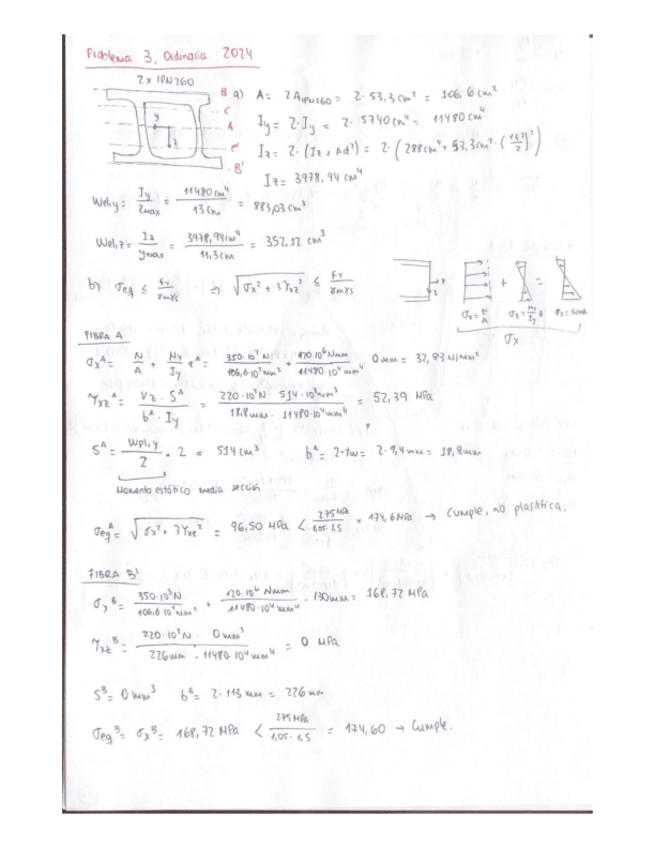 Problema 3, Ordinaria 2024
2 x IPN260
B
C
A
C'
B'
y
z
a) A = 2 A_IPN260 = 2 · 53,3 cm² = 106,6 cm²
Iy = 2 · Iy = 2 · 5740 cm⁴ = 11480 cm⁴
Iz = 2 · (Iz + Ad²) = 2 · (288 cm⁴ + 53,3 cm² · ( / 2)²)
Iz = 3978,94 cm⁴
Wel,y = Iy / Zmax = 11480 cm⁴ / 13 cm = 883,03 cm³
Wel,z = Iz / ymax = 3978,94 cm⁴ / 11,3 cm = 352,12 cm³
b) σeq ≤ fy / γMγs ⇒ √(σx² + 3τxz²) ≤ fy / γMγs
x
z
+ =
σx = N / A σx = My / Iy z σx = suma
σx
FIBRA A
σxᴬ = N / A + My / Iy · zᴬ = 350·10³ N / 106,6·10² mm² + 120·10⁶ Nmm / 11480·10⁴ mm⁴ · 0 mm = 32,83 N/mm²
τxzᴬ = Vz · Sᴬ / bᴬ · Iy = 220·10³ N · 514·10³ mm³ / 18,8 mm · 11480·10⁴ mm⁴ = 52,39 MPa
Sᴬ = Wpl,y / 2 · 2 = 514 cm³ bᴬ = 2·tw = 2·9,4 mm = 18,8 mm
Momento estático media sección
σeqᴬ = √(σx² + 3τxz²) = 96,50 MPa < 275 MPa / 1,05·1,5 = 174,6 MPa → Cumple, no plastifica.
FIBRA B'
σxᴮ = 350·10³ N / 106,6·10² mm² + 120·10⁶ Nmm / 11480·10⁴ mm⁴ · 130 mm = 168,72 MPa
τxzᴮ = 220·10³ N · 0 mm³ / 226 mm · 11480·10⁴ mm⁴ = 0 MPa
Sᴮ = 0 mm³ bᴮ = 2·113 mm = 226 mm
σeqᴮ = σxᴮ = 168,72 MPa < 275 MPa / 1,05·1,5 = 174,60 → Cumple.